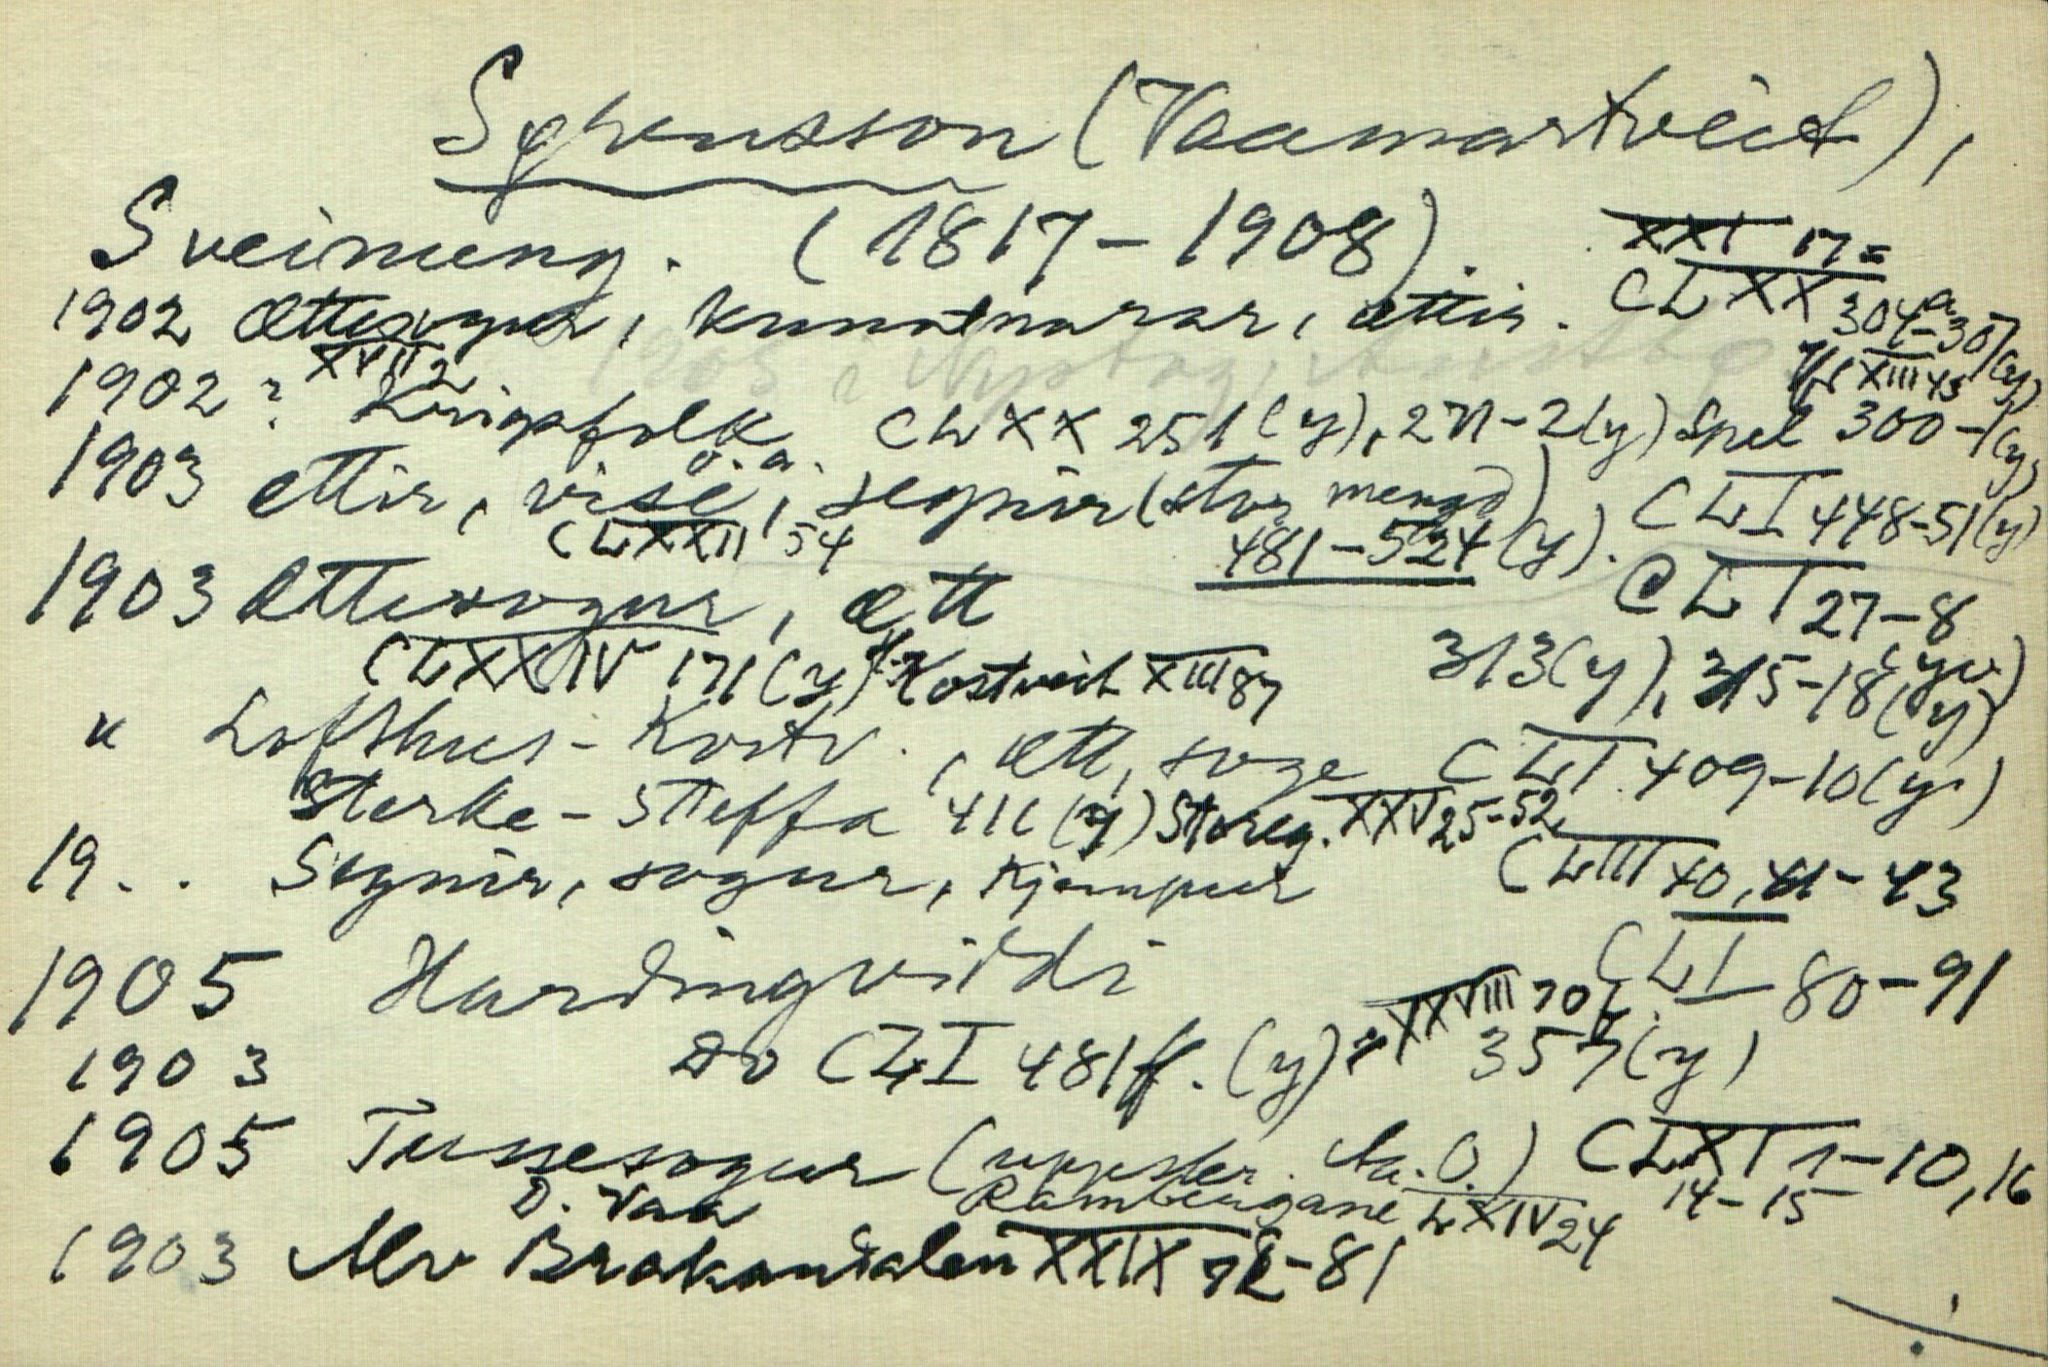 Sølvensson (Vaamartveit),
Sveinung. (1817-1908).
XXI 17 =
1902 Ættesogur, kunstnarar, ættir. CLXX 304-307(y)
XVII 2
XIII 45
1902? Krigsfolk o.a. CLXX 251(y), 271-2(y) Spel 300-1(y)
1903 ættir, vise, segnir (stor mengd). CLI 448-51(y)
CLXXII 54 481-524 (y).
1903 Ættesogur, ætt CLI 27-8
CLXXIV 171(y) Kostveit XIII 87 313(y), 315-18(y)
" Lofthus-Kostv., ætt, soge CLI 409-10(y)
Sterke-Steffa 411(y) Storeg. XXV 25-52
19.. Segnir, sogur, Kjempur CLIII 40, 41-43
1905 Hardingviddi CLI 80-91
1903 Do CLI 481ff. (y) = XXVIII 70 357(y)
1905 Tussesogur (uppskr. Aa.O.) CLXI 1-10, 16
O. Vaa Rambergane LXIV 24 14-15
1903 Alv Brakandalen XXIX 72-81